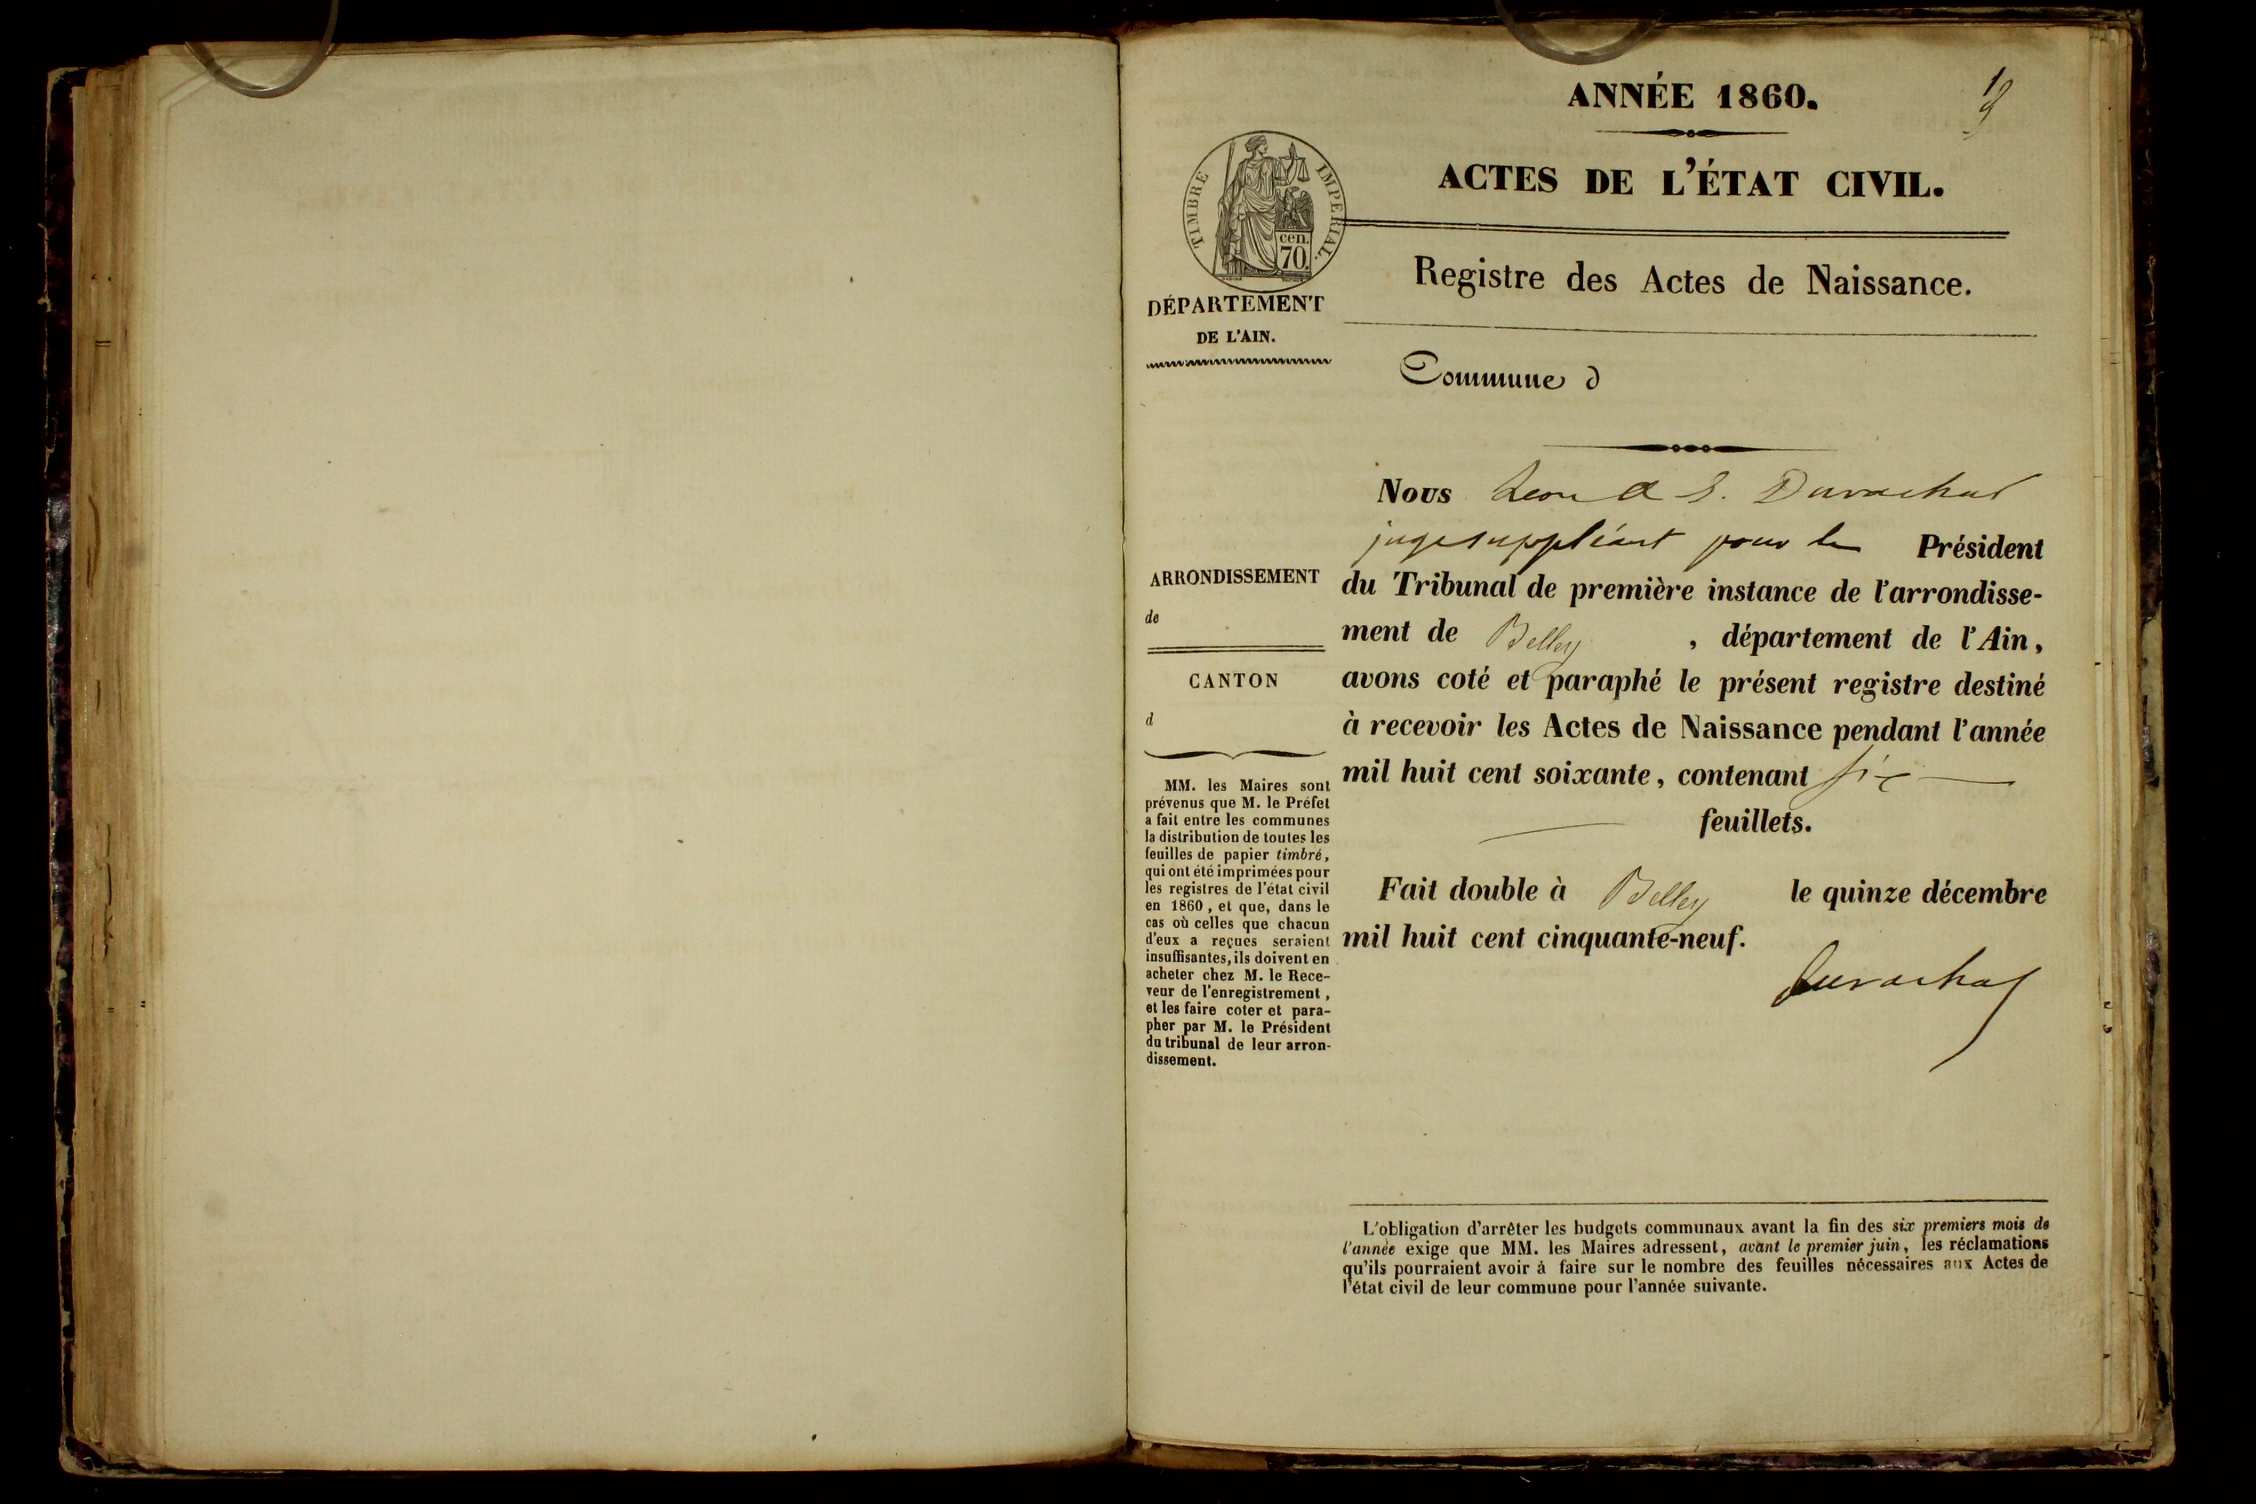 ANNÉE 1860.
1
ACTES DE L'ÉTAT CIVIL.
TIMBRE IMPERIAL.
cen.
70.
Registre des Actes de Naissance.
DÉPARTEMENT
DE L'AIN.
Commune d
Nous
juge suppléant pour le Président
du Tribunal de première instance de l'arrondisse-
ment de Belley , département de l'Ain,
avons coté et paraphé le présent registre destiné
à recevoir les Actes de Naissance pendant l'année
mil huit cent soixante, contenant six
feuillets.
Fait double à Belley le quinze décembre
mil huit cent cinquante-neuf.
ARRONDISSEMENT
de
CANTON
d
MM. les Maires sont
prévenus que M. le Préfet
a fait entre les communes
la distribution de toutes les
feuilles de papier timbré,
qui ont été imprimées pour
les registres de l'état civil
en 1860, et que, dans le
cas où celles que chacun
d'eux a reçues seraient
insuffisantes, ils doivent en
acheter chez M. le Rece-
veur de l'enregistrement,
et les faire coter et para-
pher par M. le Président
du tribunal de leur arron-
dissement.
L'obligation d'arrêter les budgets communaux avant la fin des six premiers mois de
l'année exige que MM. les Maires adressent, avant le premier juin, les réclamations
qu'ils pourraient avoir à faire sur le nombre des feuilles nécessaires aux Actes de
l'état civil de leur commune pour l'année suivante.